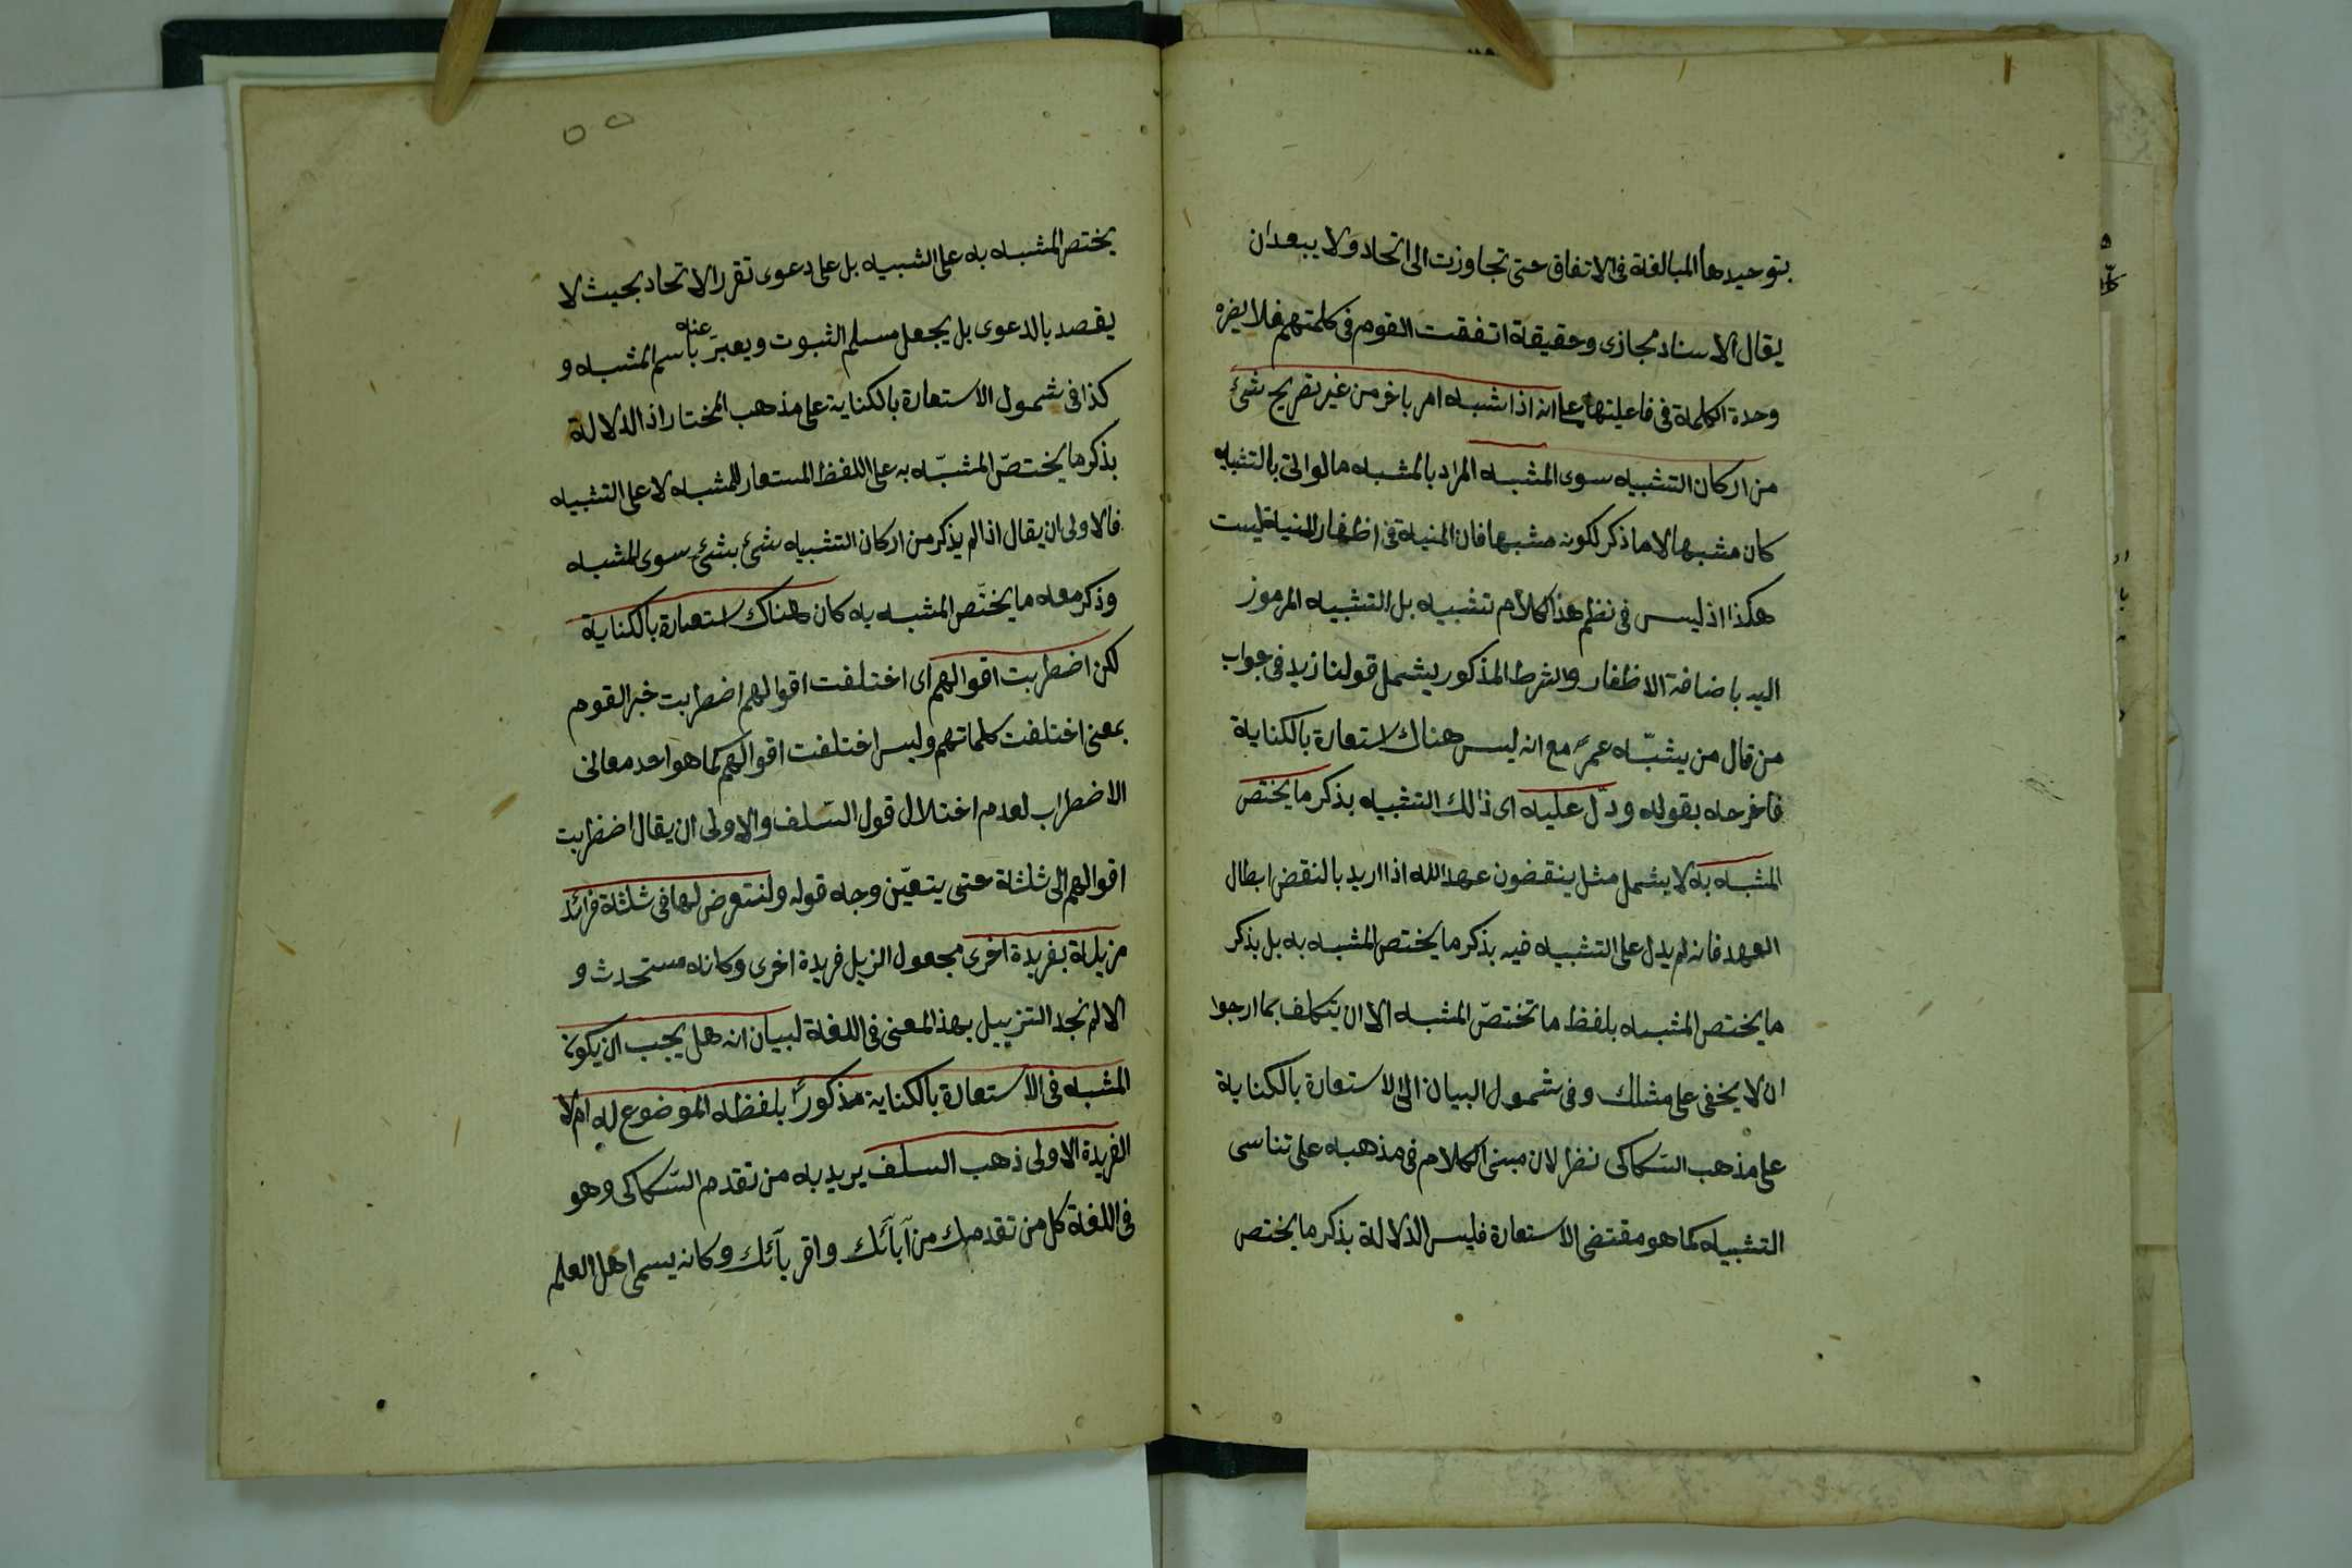 بتوحيدها المبالغة فى الاتفاق حتى تجاوزت الى اتحاد ولا يبعد ان
يقال الاسناد مجازى وحقيقة اتفقت القوم فى كلمتهم فلا يضره
وحدة الكلمة فى فاعليتها على انه اذا شبه امر باخر من غير تصريح شئ
من اركان التشبيه سوى المشبه المراد بالمشبه ما لو اتى بالتشبيه
كان مشبها لا ما ذكر لكونه مشبها فان المنية فى اظفار المنية ليست
هكذا اذ ليس فى نظم هذا الكلام تشبيه بل التشبيه المرموز
اليه باضافة الاظفار والشرط المذكور يشمل قولنا زيد فى جواب
من قال من يشبّه عمرً مع انه ليس هناك استعارة بالكناية
فاخرجه بقوله ودلّ عليه اى ذلك التشبيه بذكر ما يختص
المشبه به لا يشمل مثل ينقضون عهد الله اذا اريد بالنقض ابطال
العهد فانه لم يدل على التشبيه فيه بذكر ما يختص المشبه به بل بذكر
ما يختص المشبه بلفظ ما تختصّ المشبه الا ان يتكلف بما ارجوا
ان لا يخفى على مثلك وفى شمول البيان الى الاستعارة بالكناية
على مذهب السّكاكى نظر لان مبنى الكلام فى مذهبه على تناسى
التشبيه كما هو مقتضى الاستعارة فليس الدلالة بذكر ما يختص
٥٥
يختص المشبه به على الشبيه بل على دعوى تقرر الاتحاد بحيث لا
يقصد بالدعوى بل يجعل مسلم الثبوت ويعبر عنه باسم المشبه و
كذا فى شمول الاستعارة بالكناية على مذهب المختار اذ الدلالة
بذكر ما يختصّ المشبّه به على اللفظ المستعار للمشبه لا على التشبيه
فالاولى ان يقال اذا لم يذكر من اركان التشبيه شئ بشئ سوى المشبه
وذكر معه ما يختّص المشبه به كان هناك استعارة بالكناية
لكن اضطربت اقوالهم اى اختلفت اقوالهم اضطربت خبر القوم
بمعنى اختلفت كلماتهم وليس اختلفت اقوالهم كما هو احد معانى
الاضطراب لعدم اختلال قول السّلف والاولى ان يقال اضطربت
اقوالهم الى ثلثة حتى يتعيّن وجه قوله ولنتعرض لها فى ثلثة فرائد
مزيلة بفريدة اخرى مجعول الزيل فريدة اخرى وكانه مستحدث و
الا لم نجد التزييل بهذا المعنى فى اللغة لبيان انه هل يجب ان يكون
المشبه فى الاستعارة بالكناية مذكورًا بلفظه الموضوع له ام لا
الفريدة الاولى ذهب السلف يريد به من تقدم السّكاكى وهو
فى اللغة كل من تقدمك من آبآئك واقربآئك وكانه يسمى اهل العلم